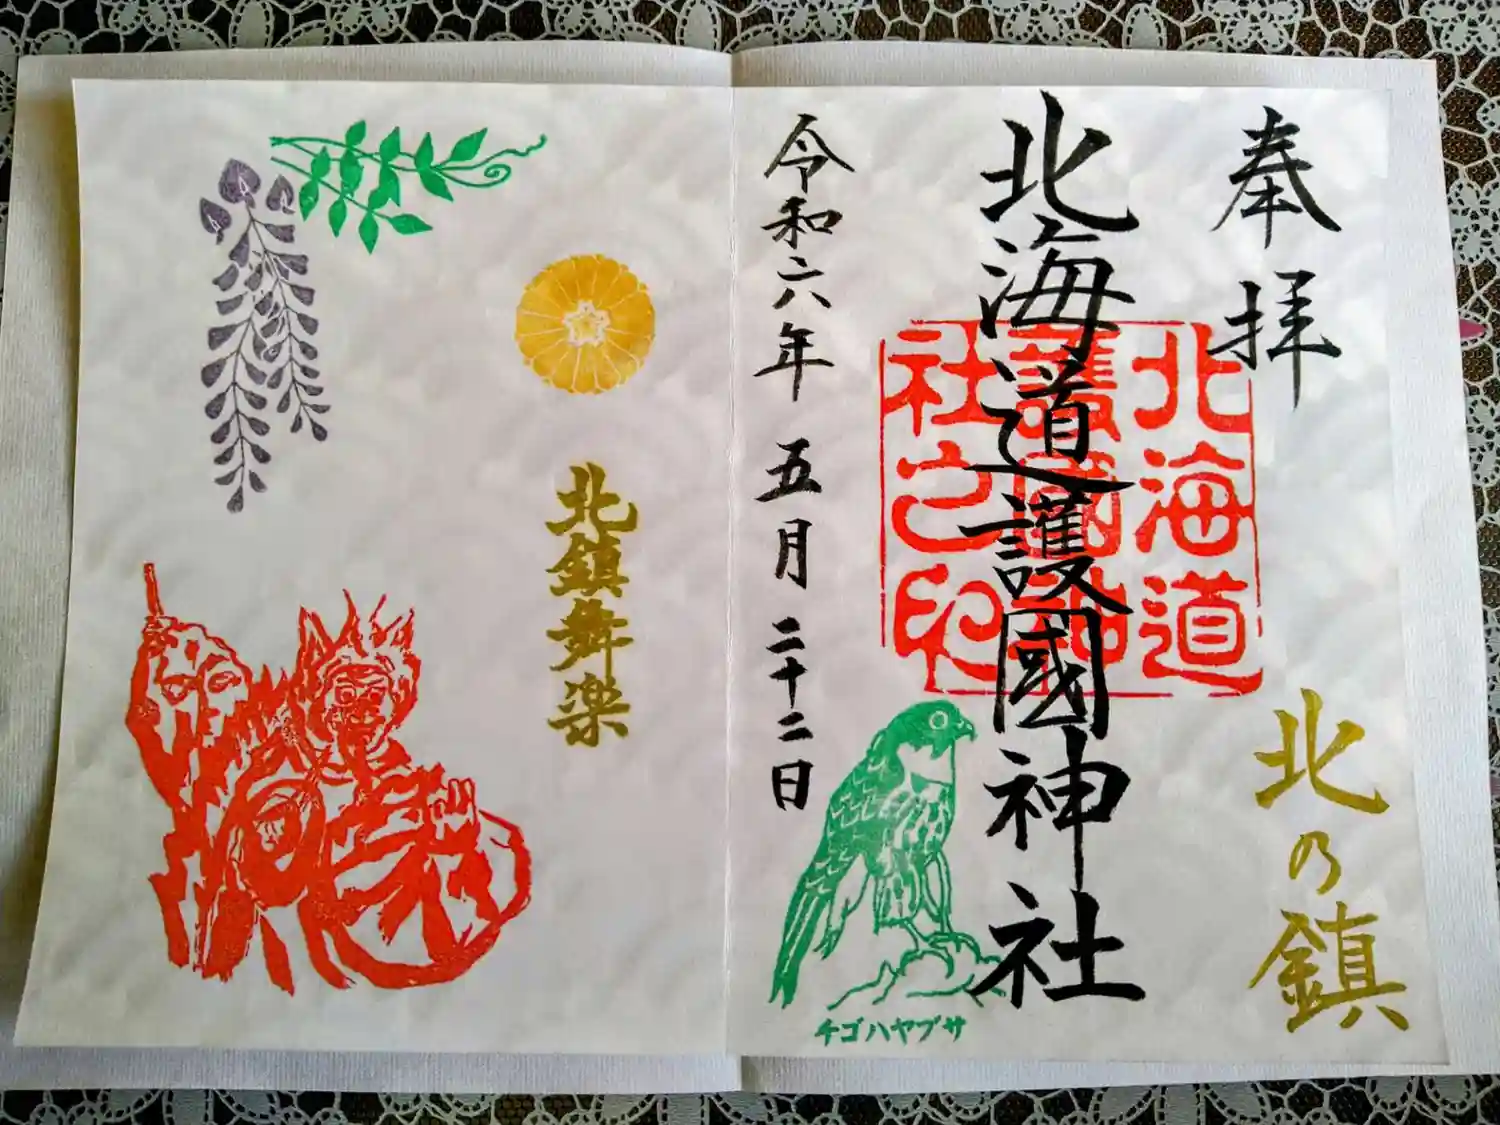 奉拝
北の鎮
北海道護國神社
北海道
護國神
社之印
令和六年 五月 二十二日
チゴハヤブサ
北鎮舞楽